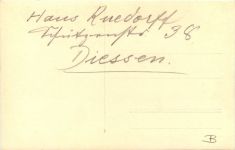 Hans Ruedorff
38
Diessen.
B